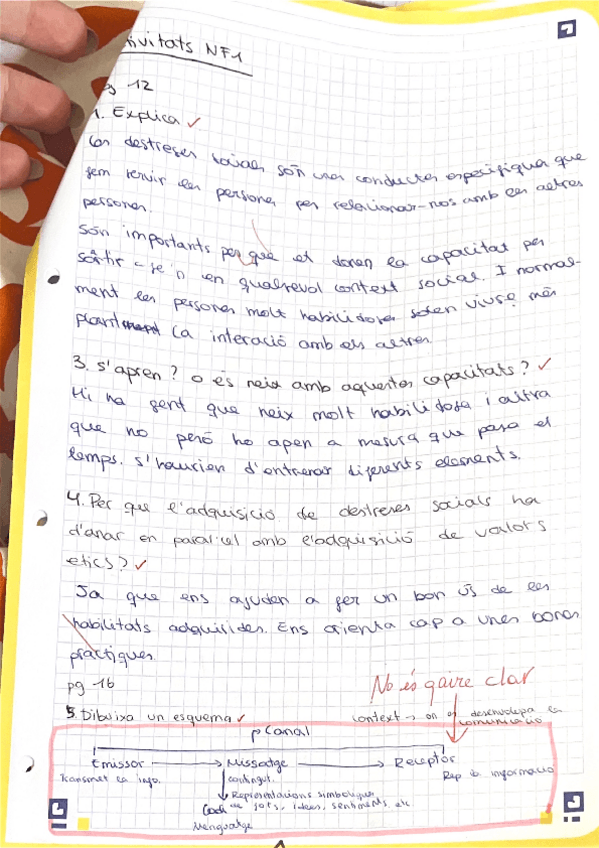 ivitats NF1
pg 12
1. Explica ✓
Les destreses socials són unes conductes especifiques que
fem servir les persones per relacionar-nos amb les altres
persones.
Són importants per que et donen la capacitat per
sortir-se'n en qualsevol context social. I normas-
ment les persones molt habilidoses solen viure més
la interació amb els altres.
3. S'apren? o es neix amb aquestes capacitats? ✓
Hi ha gent que neix molt habilidosa i altra
que no però ho apen a mesura que pasa el
temps. S'haurien d'entrenar diferents elements.
4. Per que l'adquisició de destreses socials ha
d'anar en paral·lel amb l'adquisició de valors
etics? ✓
Ja que ens ajuden a fer un bon ús de les
habilitats adquirides. Ens orienta cap a unes bones
practiques.
pg 16
No és gaire clar
5. Dibuixa un esquema ✓
context → on es desenvolupa la
comunicació
Canal
Emissor → Missatge → Receptor
Transmet la info.
contingut.
Rep la informació
Representacions simboliques
de fets, idees, sentiments, etc
Codi
Llenguatge